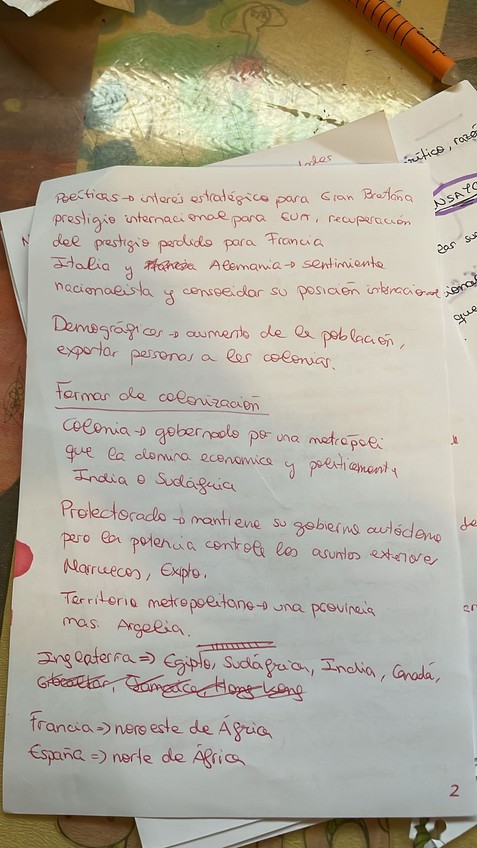 Políticas → interés estratégico para Gran Bretaña
prestigio internacional para EUA, recuperación
del prestigio perdido para Francia
Italia y Alemania → sentimiento
nacionalista y consolidar su posición internacional
Demográficas → aumento de la población,
exportar personas a las colonias.
Formas de colonización
Colonia → gobernado por una metrópoli
que la domina economica y politicamente
India o Sudáfrica
Protectorado → mantiene su gobierno autóctono
pero la potencia controla los asuntos exteriores
Marruecos, Expto.
Territorio metropolitano → una provincia
mas. Argelia.
Inglaterra => Egipto, Sudáfrica, India, Canadá,
Gibraltar, Jamaica, Hong Kong
Francia => noroeste de África
España => norte de África
2